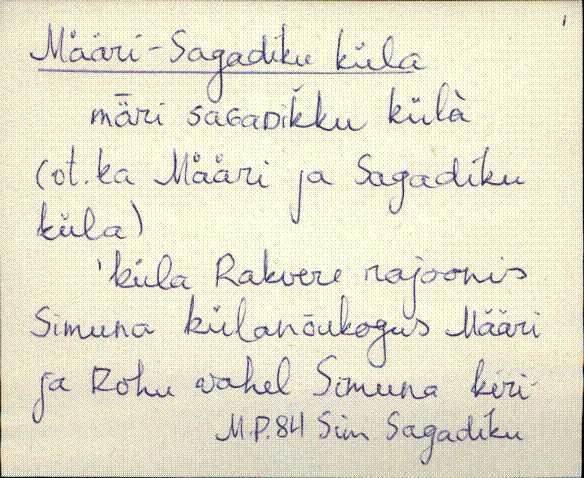 Määri-Sagadiku küla
mǟri saGaDikku külà
(ot. ka Määri ja Sagadiku
küla)
'küla Rakvere rajoonis
Simuna külanõukogus Määri
ja Rohu vahel Simuna kiri-
M.P.84 Sim Sagadiku